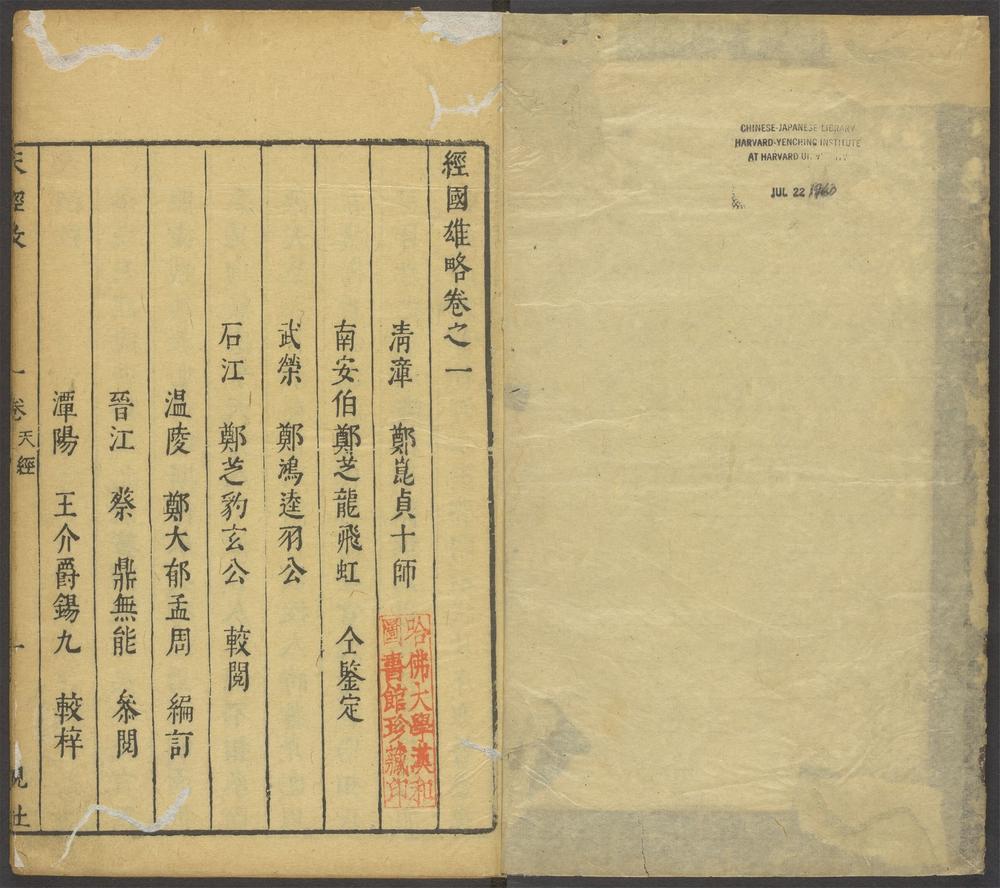 CHINESE-JAPANESE LIBRARY
HARVARD-YENCHING INSTITUTE
AT HARVARD
JUL 22 1960
經國雄略卷之一
清漳 鄭崑貞十師
南安伯鄭芝龍飛虹 仝鑒定
武榮 鄭鴻逵羽公
石江 鄭芝豹玄公 較閱
溫陵 鄭大郁孟周 編訂
晉江 蔡鼎無能 叅閱
潭陽 王介爵錫九 較梓
哈佛大學漢和
圖書館珍藏印
天經攷 一卷 天經 一 觀社